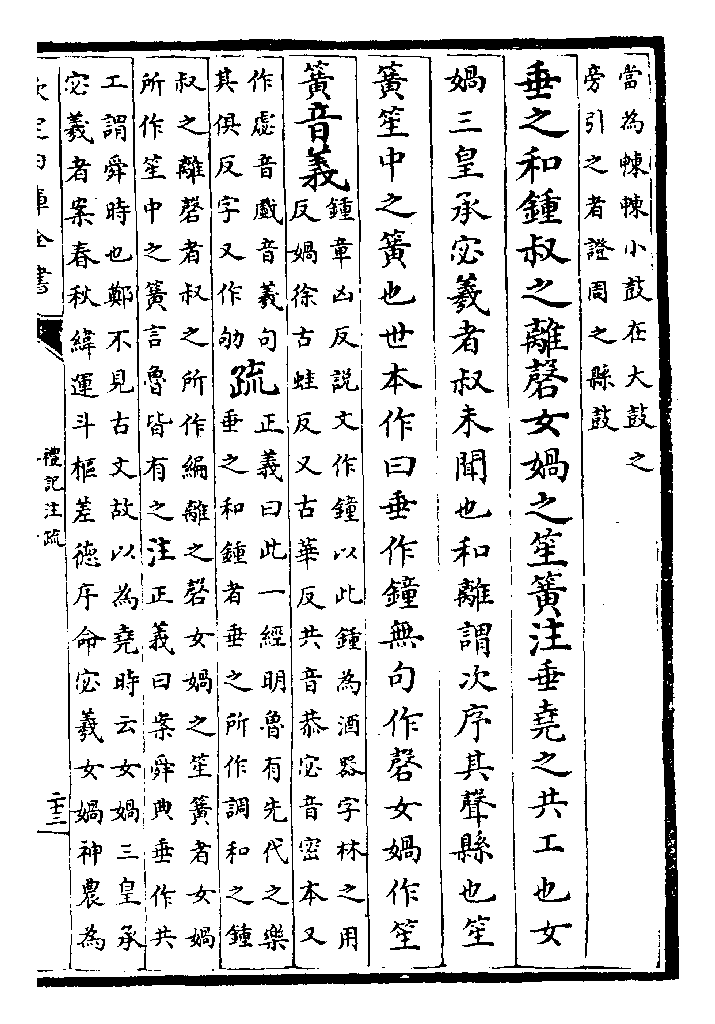 當為朄朄小鼓在大鼓之
旁引之者證周之縣鼓
垂之和鍾叔之離磬女媧之笙簧注垂堯之共工也女
媧三皇承宓羲者叔未聞也和離謂次序其聲縣也笙
簧笙中之簧也世本作曰垂作鐘無句作磬女媧作笙
簧音義
鍾章凶反説文作鐘以此鍾為酒器字林之用
反媧徐古蛙反又古華反共音恭宓音密本又
作虙音戲音義句
其俱反字又作劬
疏
正義曰此一經明魯有先代之樂
垂之和鍾者垂之所作調和之鍾
叔之離磬者叔之所作編離之磬女媧之笙簧者女媧
所作笙中之簧言魯皆有之注正義曰案舜典垂作共
工謂舜時也鄭不見古文故以為堯時云女媧三皇承
宓羲者案春秋緯運斗樞差德序命宓羲女媧神農為
欽定四庫全書
禮記注疏
二十三